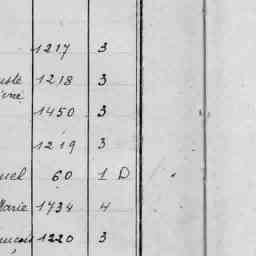 1217 3
1218 3
1450 3
1219 3
uel 60 1 D
Marie 1734 4
1220 3